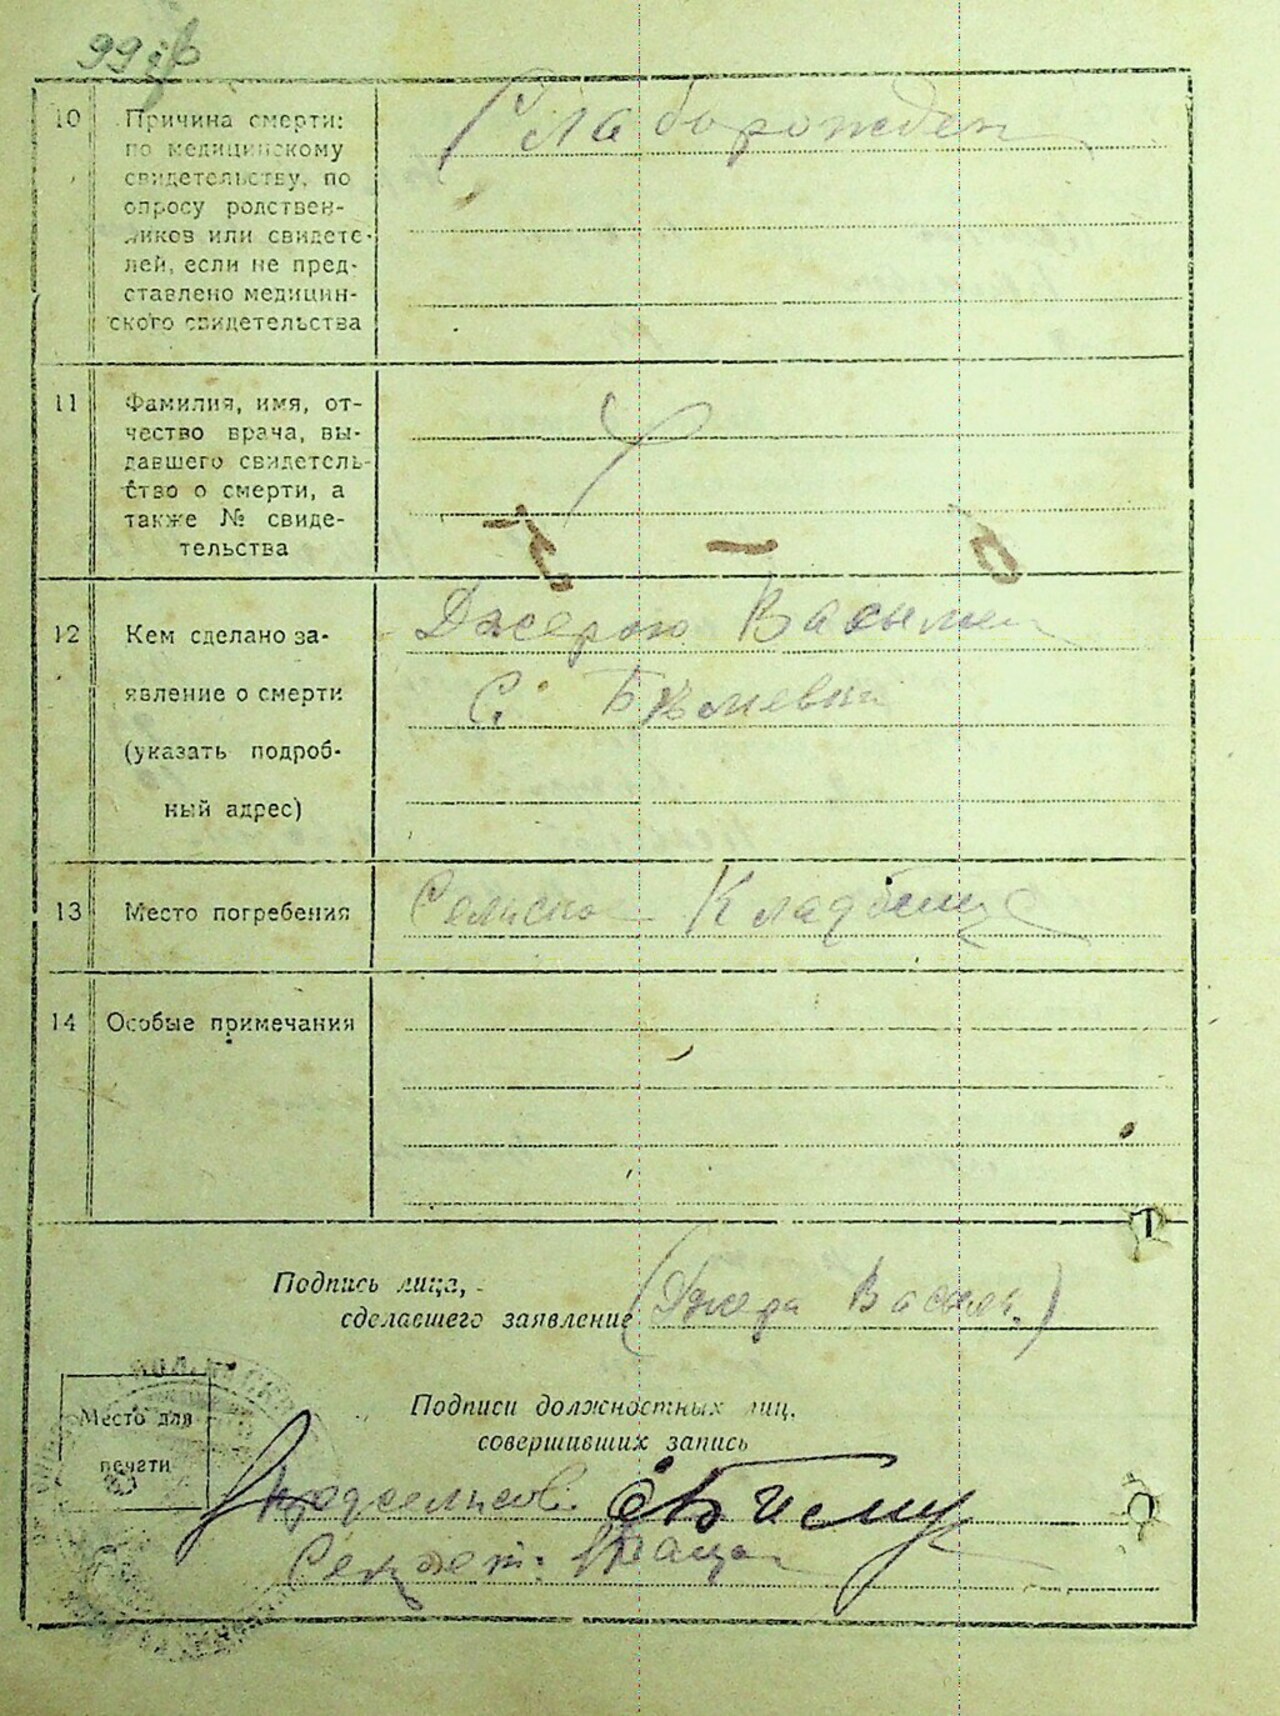 99
10 Причина смерти: Слаборожден
по медицинскому
свидетельству, по
опросу родствен-
ников или свидете-
лей, если не пред-
ставлено медицин-
ского свидетельства
11 Фамилия, имя, от-
чество врача, вы-
давшего свидетель-
ство о смерти, а
также № свиде-
тельства
12 Кем сделано за- Джерою
явление о смерти С.
(указать подроб-
ный адрес)
13 Место погребения Сельское Кладбище
14 Особые примечания
Подпись лица,
сделавшего заявление (Джера Васыл.)
Место для
печати
Подписи должностных лиц,
совершивших запись